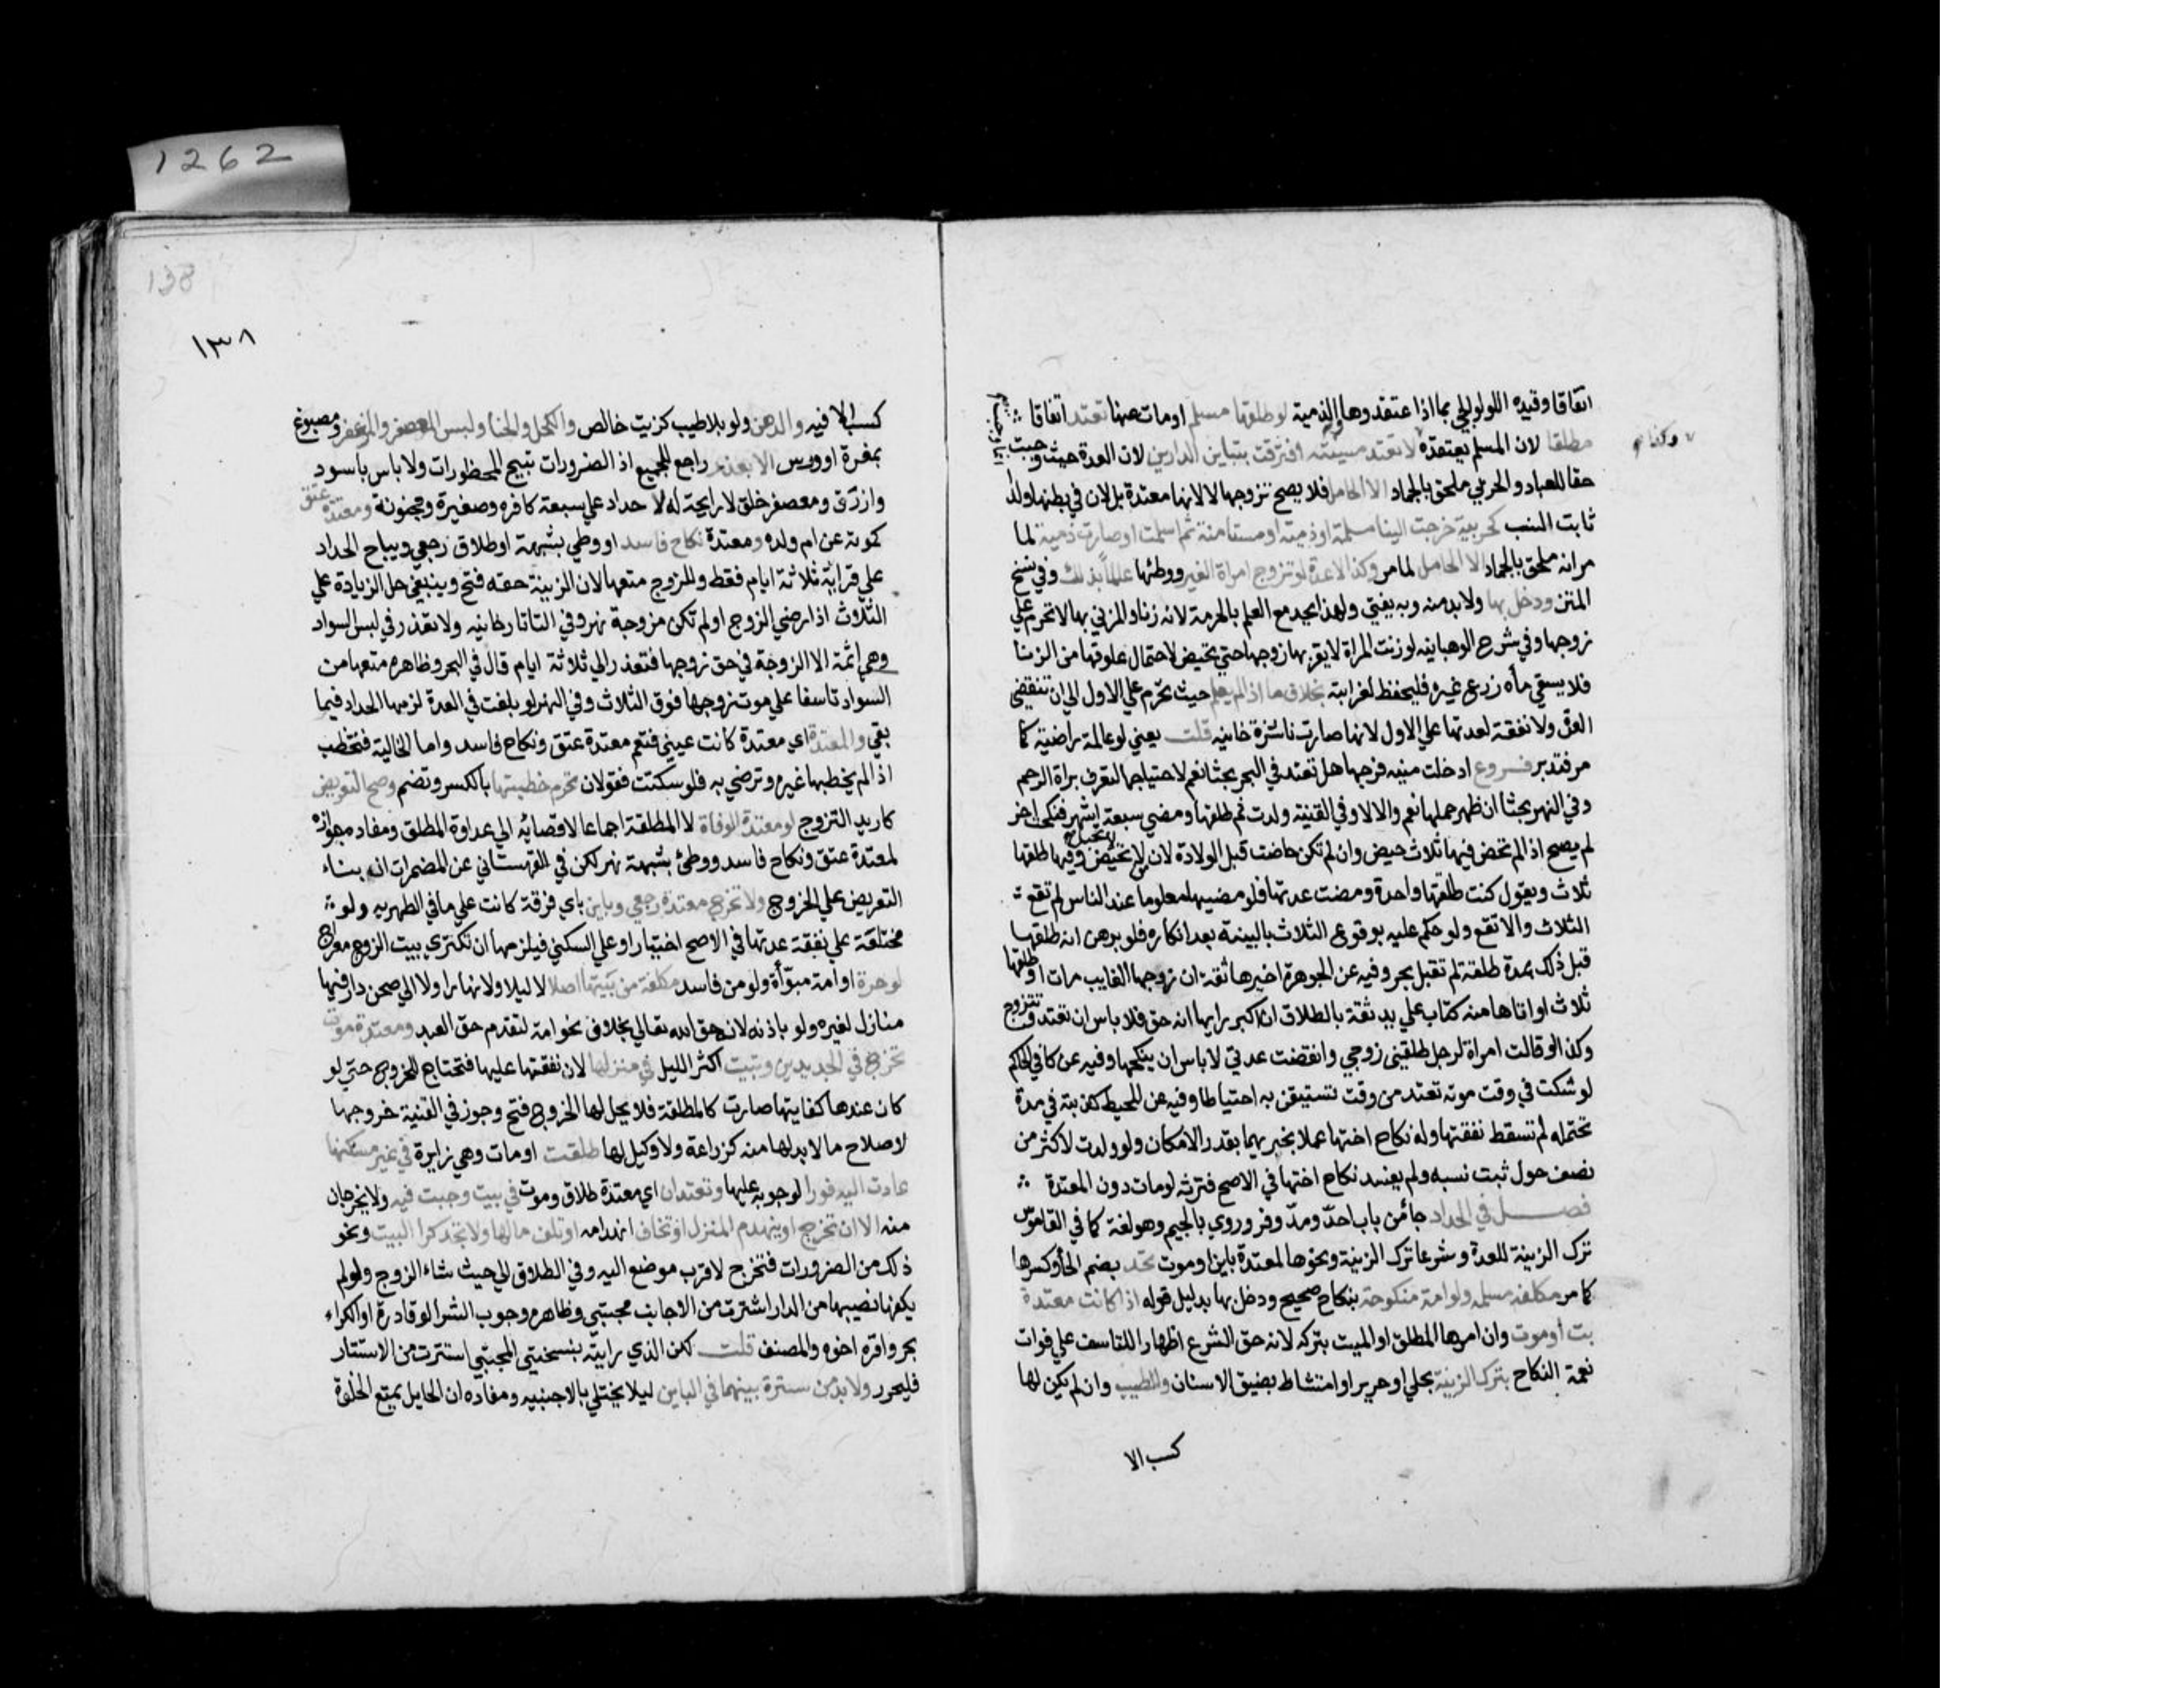 اتفاقا وقيده اللولوالجي بما اذا اعتقدوها والذمية لو طلقها مسلم اومات عنها تعتد اتفاقا
مطلقا لان المسلم يعتقده لا تعتد مسبيته افترقت بتباين الدارين لان العدة حيث وجبت
وكذا
حقا للعباد والحربي ملحق بالجماد الا الحامل فلا يصح تزوجها لا لانها معتدة بل لان في بطنها ولد
ثابت النسب كحربية خرجت الينا مسلمة او ذمية او مستامنة ثم اسلمت او صارت ذمية لما
مر انه ملحق بالجماد الا الحامل لما مر وكذا لا عدة لو تزوج امراة الغير ووطئها عالما بذلك وفي نسخ
المتن ودخل بها ولا بد منه وبه يفتي ولهذا يحد مع العلم بالحرمة لانه زنا والمزني بها لا تحرم علي
زوجها وفي شرح الوهبانيه لو زنت المراة لا يقربها زوجها حتي تحيض لاحتمال علوقها من الزنا
فلا يسقي ماه زرع غيره فليحفظ لغرابته بخلاف ما اذا لم يعلم حيث تحرم علي الاول الي ان تنقضي
العدة ولا نفقة لعدتها علي الاول لانها صارت ناشزة خانيه قلت يعني لو عالمة راضية كما
مر فتدبر فروع ادخلت منيه فرجها هل تعتد في البحر بحثا نعم لاحتياجها لتعرف براة الرحم
وفي النهر بحثا ان ظهر حملها نعم والا لا وفي القنية ولدت ثم طلقها ومضي سبعة اشهر فنكحت اخر
لم يصح اذا لم تحض فيها ثلاث حيض وان لم تكن حاضت قبل الولادة لان من لا تحيض لا تحبل وفيها طلقها
ثلاث ويقول كنت طلقتها واحدة ومضت عدتها فلو مضيها معلوما عند الناس لم تقع
الثلاث والا تقع ولو حكم عليه بوقوع الثلاث بالبينة بعد انكاره فلو برهن انه طلقها
قبل ذلك بمدة طلقة لم تقبل بحر وفيه عن الجوهرة اخبرها ثقة ان زوجها الغايب مات او طلقها
ثلاث او اتاها منه كتاب علي يد ثقة بالطلاق ان اكبر رايها انه حق فلا باس ان تعتد وتتزوج
وكذا لو قالت امراة لرجل طلقني زوجي وانقضت عدتي لا باس ان ينكحها وفيه عن كافي الحاكم
لو شكت في وقت موته تعتد من وقت تستيقن به احتياطا وفيه عن المحيط كذبته في مدة
تحتمله لم تسقط نفقتها وله نكاح اختها عملا بخبريهما بقدر الامكان ولو ولدت لاكثر من
نصف حول ثبت نسبه ولم يفسد نكاح اختها في الاصح فترثه لو مات دون المعتدة
فصل في الحداد جا من باب احد ومد وفر وروي بالجيم وهو لغة كما في القاموس
ترك الزينة للعدة وشرعا ترك الزينة ونحوها لمعتدة باين او موت تحد بضم الحا وكسرها
كما مر مكلفة مسلمه ولو امة منكوحة بنكاح صحيح ودخل بها بدليل قوله اذا كانت معتدة
بت أو موت وان امرها المطلق او الميت بتركه لانه حق الشرع اظهارا للتاسف علي فوات
نعمة النكاح بترك الزينة بحلي او حرير او امتشاط بضيق الاسنان والطيب وان لم يكن لها
كسب الا
138
١٣٨
كسب الا فيه والدهن ولو بلا طيب كزيت خالص والكحل والحنا ولبس المعصفر والمزعفر ومصبوغ
بمغرة او ورس الا بعذر راجع للجميع اذ الضرورات تبيح المحظورات ولا باس باسود
وازرق ومعصفر خلق لا رايحة له لا حداد علي سبعة كافره وصغيرة ومجنونة ومعتدة عتق
كموته عن ام ولده ومعتدة نكاح فاسد او وطي بشبهة او طلاق رجعي ويباح الحداد
علي قرابة ثلاثة ايام فقط وللزوج منعها لان الزينة حقه فتح وينبغي حل الزيادة علي
الثلاث اذا رضي الزوج او لم تكن مزوجة نهر وفي التاتارخانيه ولا تعذر في لبس السواد
وهي اثمة الا الزوجة في حق زوجها فتعذر الي ثلاثة ايام قال في البحر وظاهره منعها من
السواد تاسفا علي موت زوجها فوق الثلاث وفي النهر لو بلغت في العدة لزمها الحداد فيما
بقي والمعتدة اي معتدة كانت عيني فتعم معتدة عتق ونكاح فاسد واما الخالية فتخطب
اذا لم يخطبها غيره وترضي به فلو سكتت فقولان تحرم خطبتها بالكسر وتضم وصح التعريض
كاريد التزوج لو معتدة الوفاة لا المطلقة اجماعا لافضائه الي عداوة المطلق ومفاده جوازه
لمعتدة عتق ونكاح فاسد ووطئ بشبهة نهر لكن في القهستاني عن المضمرات ان بناء
التعريض علي الخروج ولا تخرج معتدة رجعي وباين باي فرقة كانت علي ما في الظهريه ولو
مختلعة علي نفقة عدتها في الاصح اختيار او علي السكني فيلزمها ان تكتري بيت الزوج معراج
لو حرة او امة مبوّأة ولو من فاسد مكلفة من بيتها اصلا لا ليلا ولا نهارا ولا الي صحن دار فيها
منازل لغيره ولو باذنه لانه حق الله تعالي بخلاف نحو امة لتقدم حق العبد ومعتدة موت
تخرج في الجديدين وتبيت اكثر الليل في منزلها لان نفقتها عليها فتحتاج للخروج حتي لو
كان عندها كفايتها صارت كالمطلقة فلا يحل لها الخروج فتح وجوز في القنية خروجها
لاصلاح ما لا بد لها منه كزراعة ولا وكيل لها طلقت او مات وهي زايرة في غير مسكنها
عادت اليه فورا لوجوبه عليها وتعتدان اي معتدة طلاق وموت في بيت وجبت فيه ولا يخرجان
منه الا ان تخرج او ينهدم المنزل او تخاف انهدامه او تلف مالها ولا تجد كرا البيت ونحو
ذلك من الضرورات فتخرج لاقرب موضع اليه وفي الطلاق الي حيث شاء الزوج ولو لم
يكفها نصيبها من الدار اشترت من الاجانب مجتبي وظاهره وجوب الشر الو قادرة او الكراء
بحر واقره اخوه والمصنف قلت لكن الذي رايته بنسختي المجتبي استترت من الاستتار
فليحرر ولا بد من سترة بينهما في الباين ليلا يختلي بالاجنبيه ومفاده ان الحايل يمنع الخلوة
1262